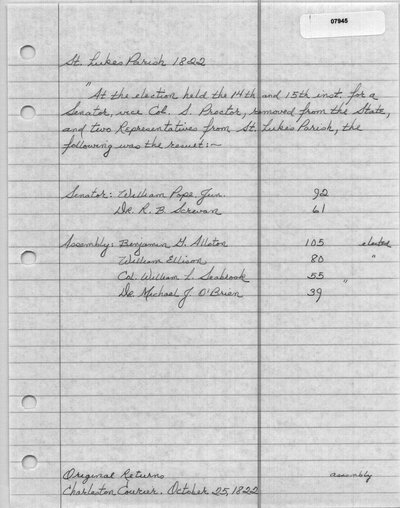 07945
St. Lukes Parish 1822
"At the election held the 14th and 15th inst. for a
Senator, vice Col. S. Proctor, removed from the State,
and two Representatives from St. Lukes Parish, the
following was the result:~
Senator: William Pope Jun. 92
Dr. R. B. Screvan 61
Assembly: Benjamin G. Allston 105 elected
William Ellison 80 "
Col. William L. Seabrook 55 "
Dr. Michael J. O'Brien 39
Original Returns assembly
Charleston Courier. October 25, 1822